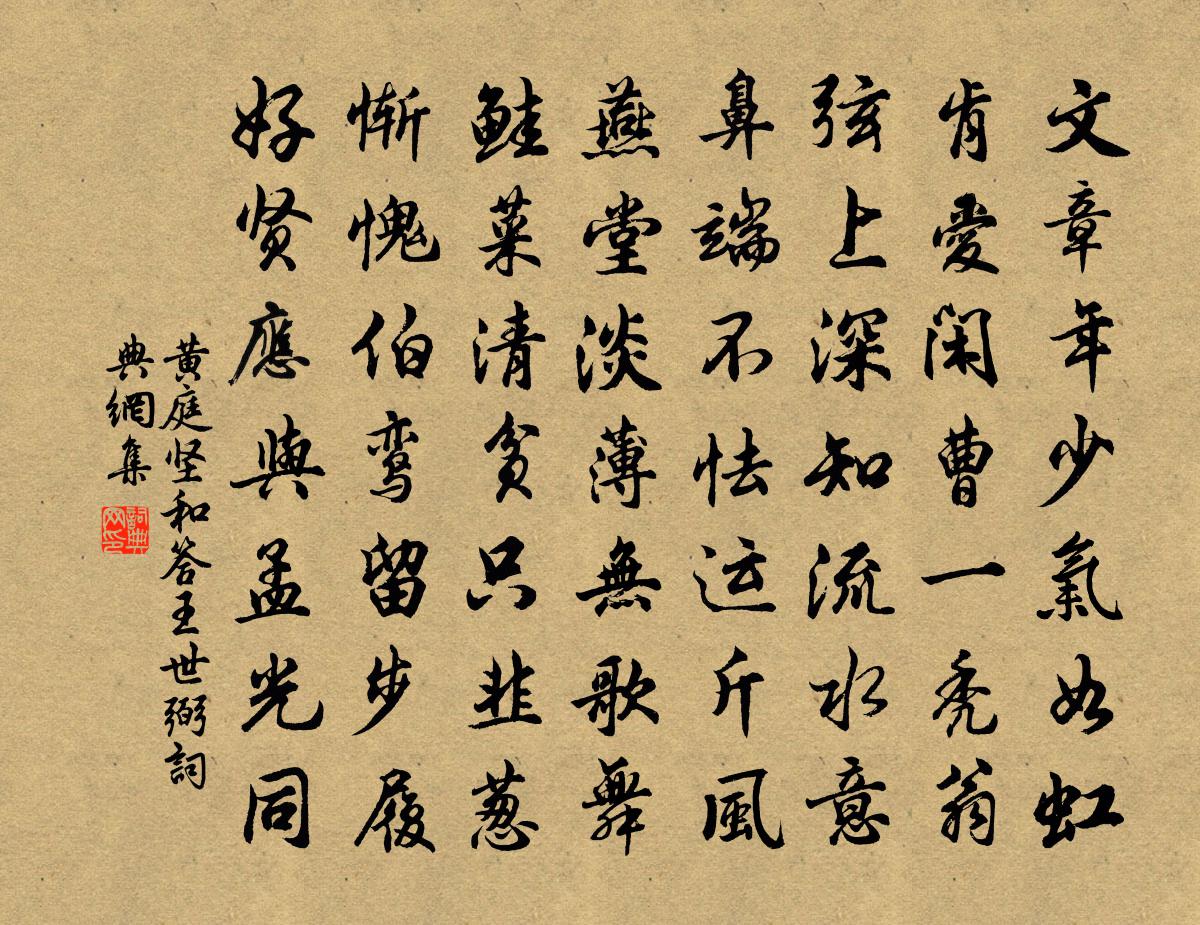 文章年少氣如虹
肯愛閑曹一秃翁
弦上深知流水意
鼻端不怯运斤風
燕堂淡薄無歌舞
鮭菜清貧只韭葱
慚愧伯鸾留步履
好贤應與孟光同
黄庭坚和答王世弼詞
典網集
詞典
网印